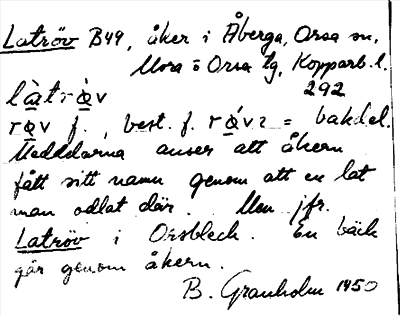 Latröv B49, åker i Åberga, Orsa sn,
Mora o Orsa tg, Kopparb. l.
292
làtrò̱v
ro̱v f., best. f. ró̱vɿ = bakdel.
Meddelarna anser att åkern
fått sitt namn genom att en lat
man odlat där. Men jfr.
Latröv i Orsbleck. En bäck
går genom åkern.
B. Granholm 1950